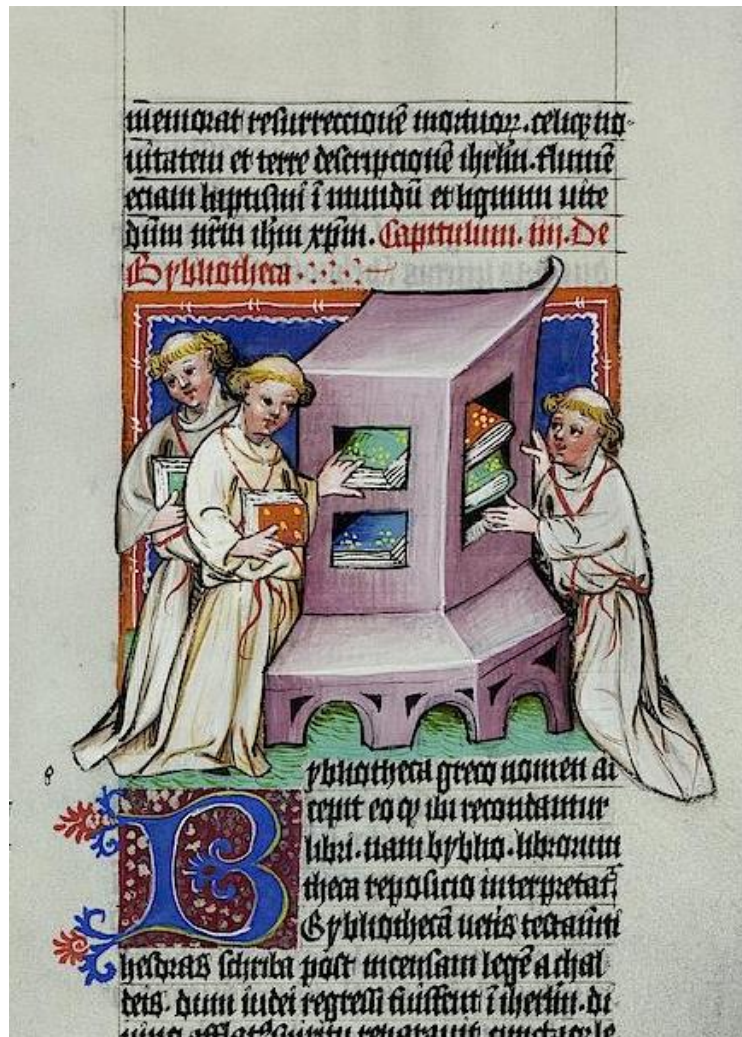 memorat resurreccionē mortuoꝝ. celiqꝫ no-
uitatem et terre descripcionē ihrlm̄. flumē
eciam baptismi ī mundū et lignum uite
dūm nr̄m ihm̄ xp̄m. Capitulum. iiij. De
Bybliotheca
Bybliotheca greco nomen ac
cepit eo qꝫ ibi recondantur
libri. nam byblio. librorum
theca reposicio interpretat᷑.
Bybliothecā uetis testam̄ti
hesdras scriba post incensam legē a chal
deis. dum iudei regressi fuissent ī iherlm̄. di
uino afflatꝰ spiritu reparauit cunctaqꝫ le